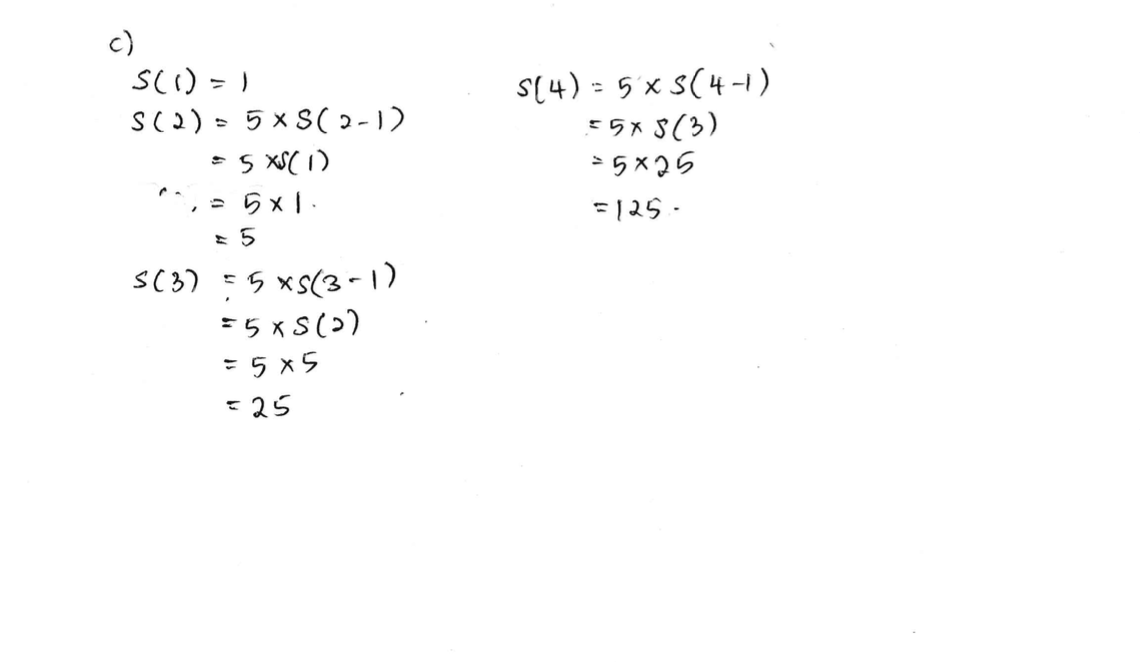 c)
S(1) = 1
S(2) = 5 × S(2-1)
= 5 × S(1)
= 5 × 1.
= 5
S(3) = 5 × S(3-1)
= 5 × S(2)
= 5 × 5
= 25
S(4) = 5 × S(4-1)
= 5 × S(3)
= 5 × 25
= 125.